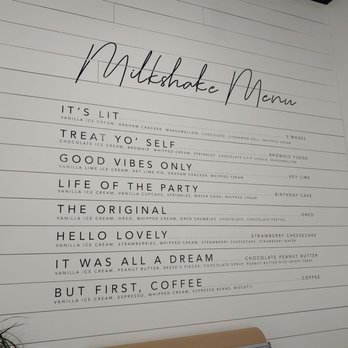 Milkshake Menu
IT'S LIT S'MORES
VANILLA ICE CREAM, GRAHAM CRACKER, MARSHMALLOW, CHOCOLATE, CINNAMON ROLL, WHIPPED CREAM
TREAT YO' SELF BROWNIE FUDGE
CHOCOLATE ICE CREAM, BROWNIE, WHIPPED CREAM, SPRINKLES, CHOCOLATE CHIP COOKIE, MARSHMALLOW
GOOD VIBES ONLY KEY LIME
VANILLA LIME ICE CREAM, KEY LIME PIE, GRAHAM CRACKER, WHIPPED CREAM
LIFE OF THE PARTY BIRTHDAY CAKE
VANILLA ICE CREAM, VANILLA CUPCAKE, SPRINKLES, WAFER CONE, WHIPPED CREAM
THE ORIGINAL OREO
VANILLA ICE CREAM, OREO, WHIPPED CREAM, OREO CRUMBLES, CHOCOLATE, CHOCOLATE PRETZEL
HELLO LOVELY STRAWBERRY CHEESECAKE
VANILLA ICE CREAM, STRAWBERRIES, WHIPPED CREAM, STRAWBERRY CHEESECAKE, STRAWBERRY WAFER
IT WAS ALL A DREAM CHOCOLATE PEANUT BUTTER
VANILLA ICE CREAM, PEANUT BUTTER, REESE'S PIECES, CHOCOLATE SYRUP, PEANUT BUTTER RICE CRISPY TREAT
BUT FIRST, COFFEE COFFEE
VANILLA ICE CREAM, ESPRESSO, WHIPPED CREAM, ESPRESSO BEANS, BISCOTTI